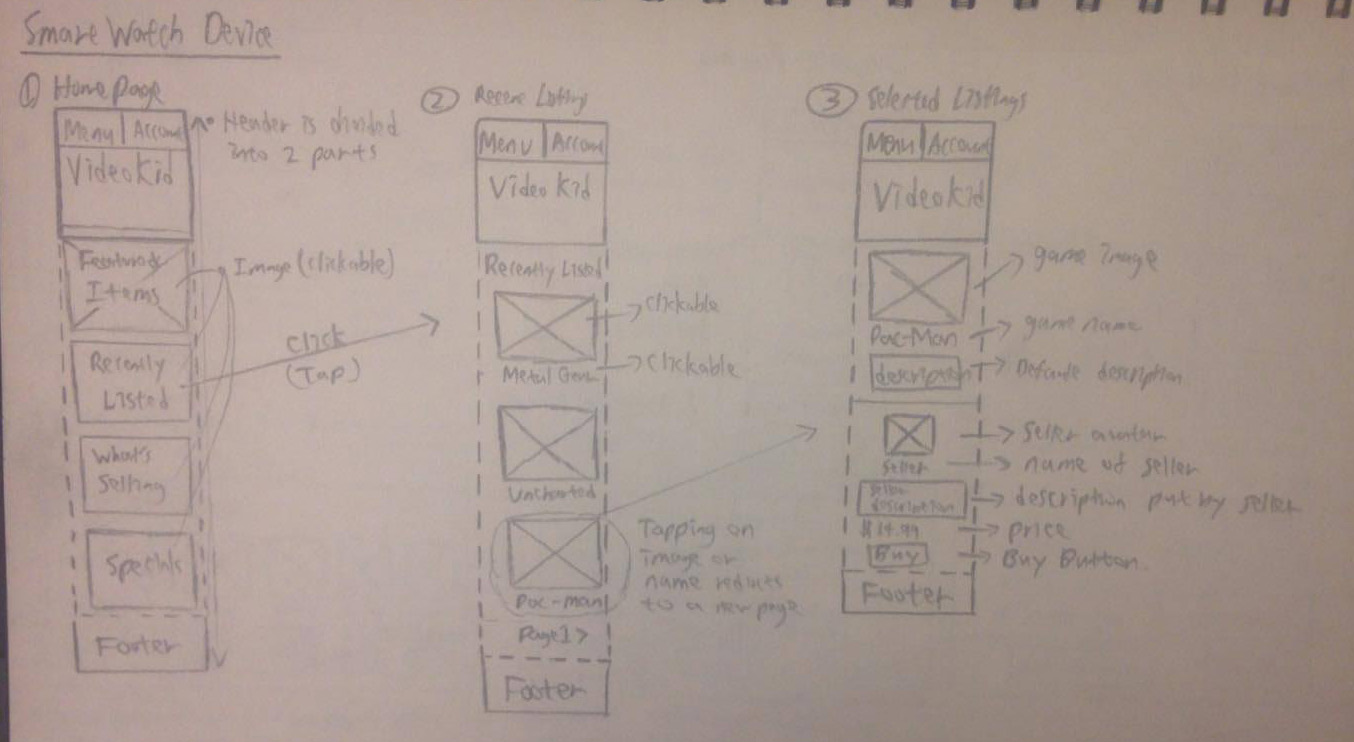 Smart Watch Device
① Home Page
Menu | Account
Header is divided
into 2 parts
VideoKid
Featured
Items
Image (clickable)
Recently
Listed
Click
(Tap)
What's
Selling
Specials
Footer
② Recent Listing
Menu | Account
Video Kid
Recently Listed
clickable
Metal Gear
clickable
Uncharted
Tapping on
image or
name
to a new page
Pac-man
Page 1 >
Footer
③ Selected Listings
Menu | Account
VideoKid
game image
Pac-Man
game name
description
description
Seller avatar
Seller
name of seller
Seller
description
description put by seller
price
Buy
Buy Button
Footer